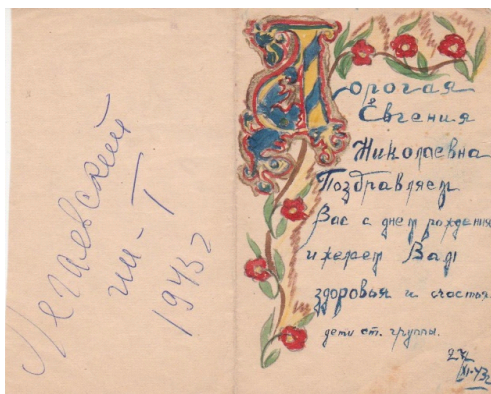 Легаевский
ин-т
1943 г
Дорогая
Евгения
Николаевна
Поздравляем
Вас с днем рождения
и желаем Вам
здоровья и счастья
дети ст. группы.
XI-43 г